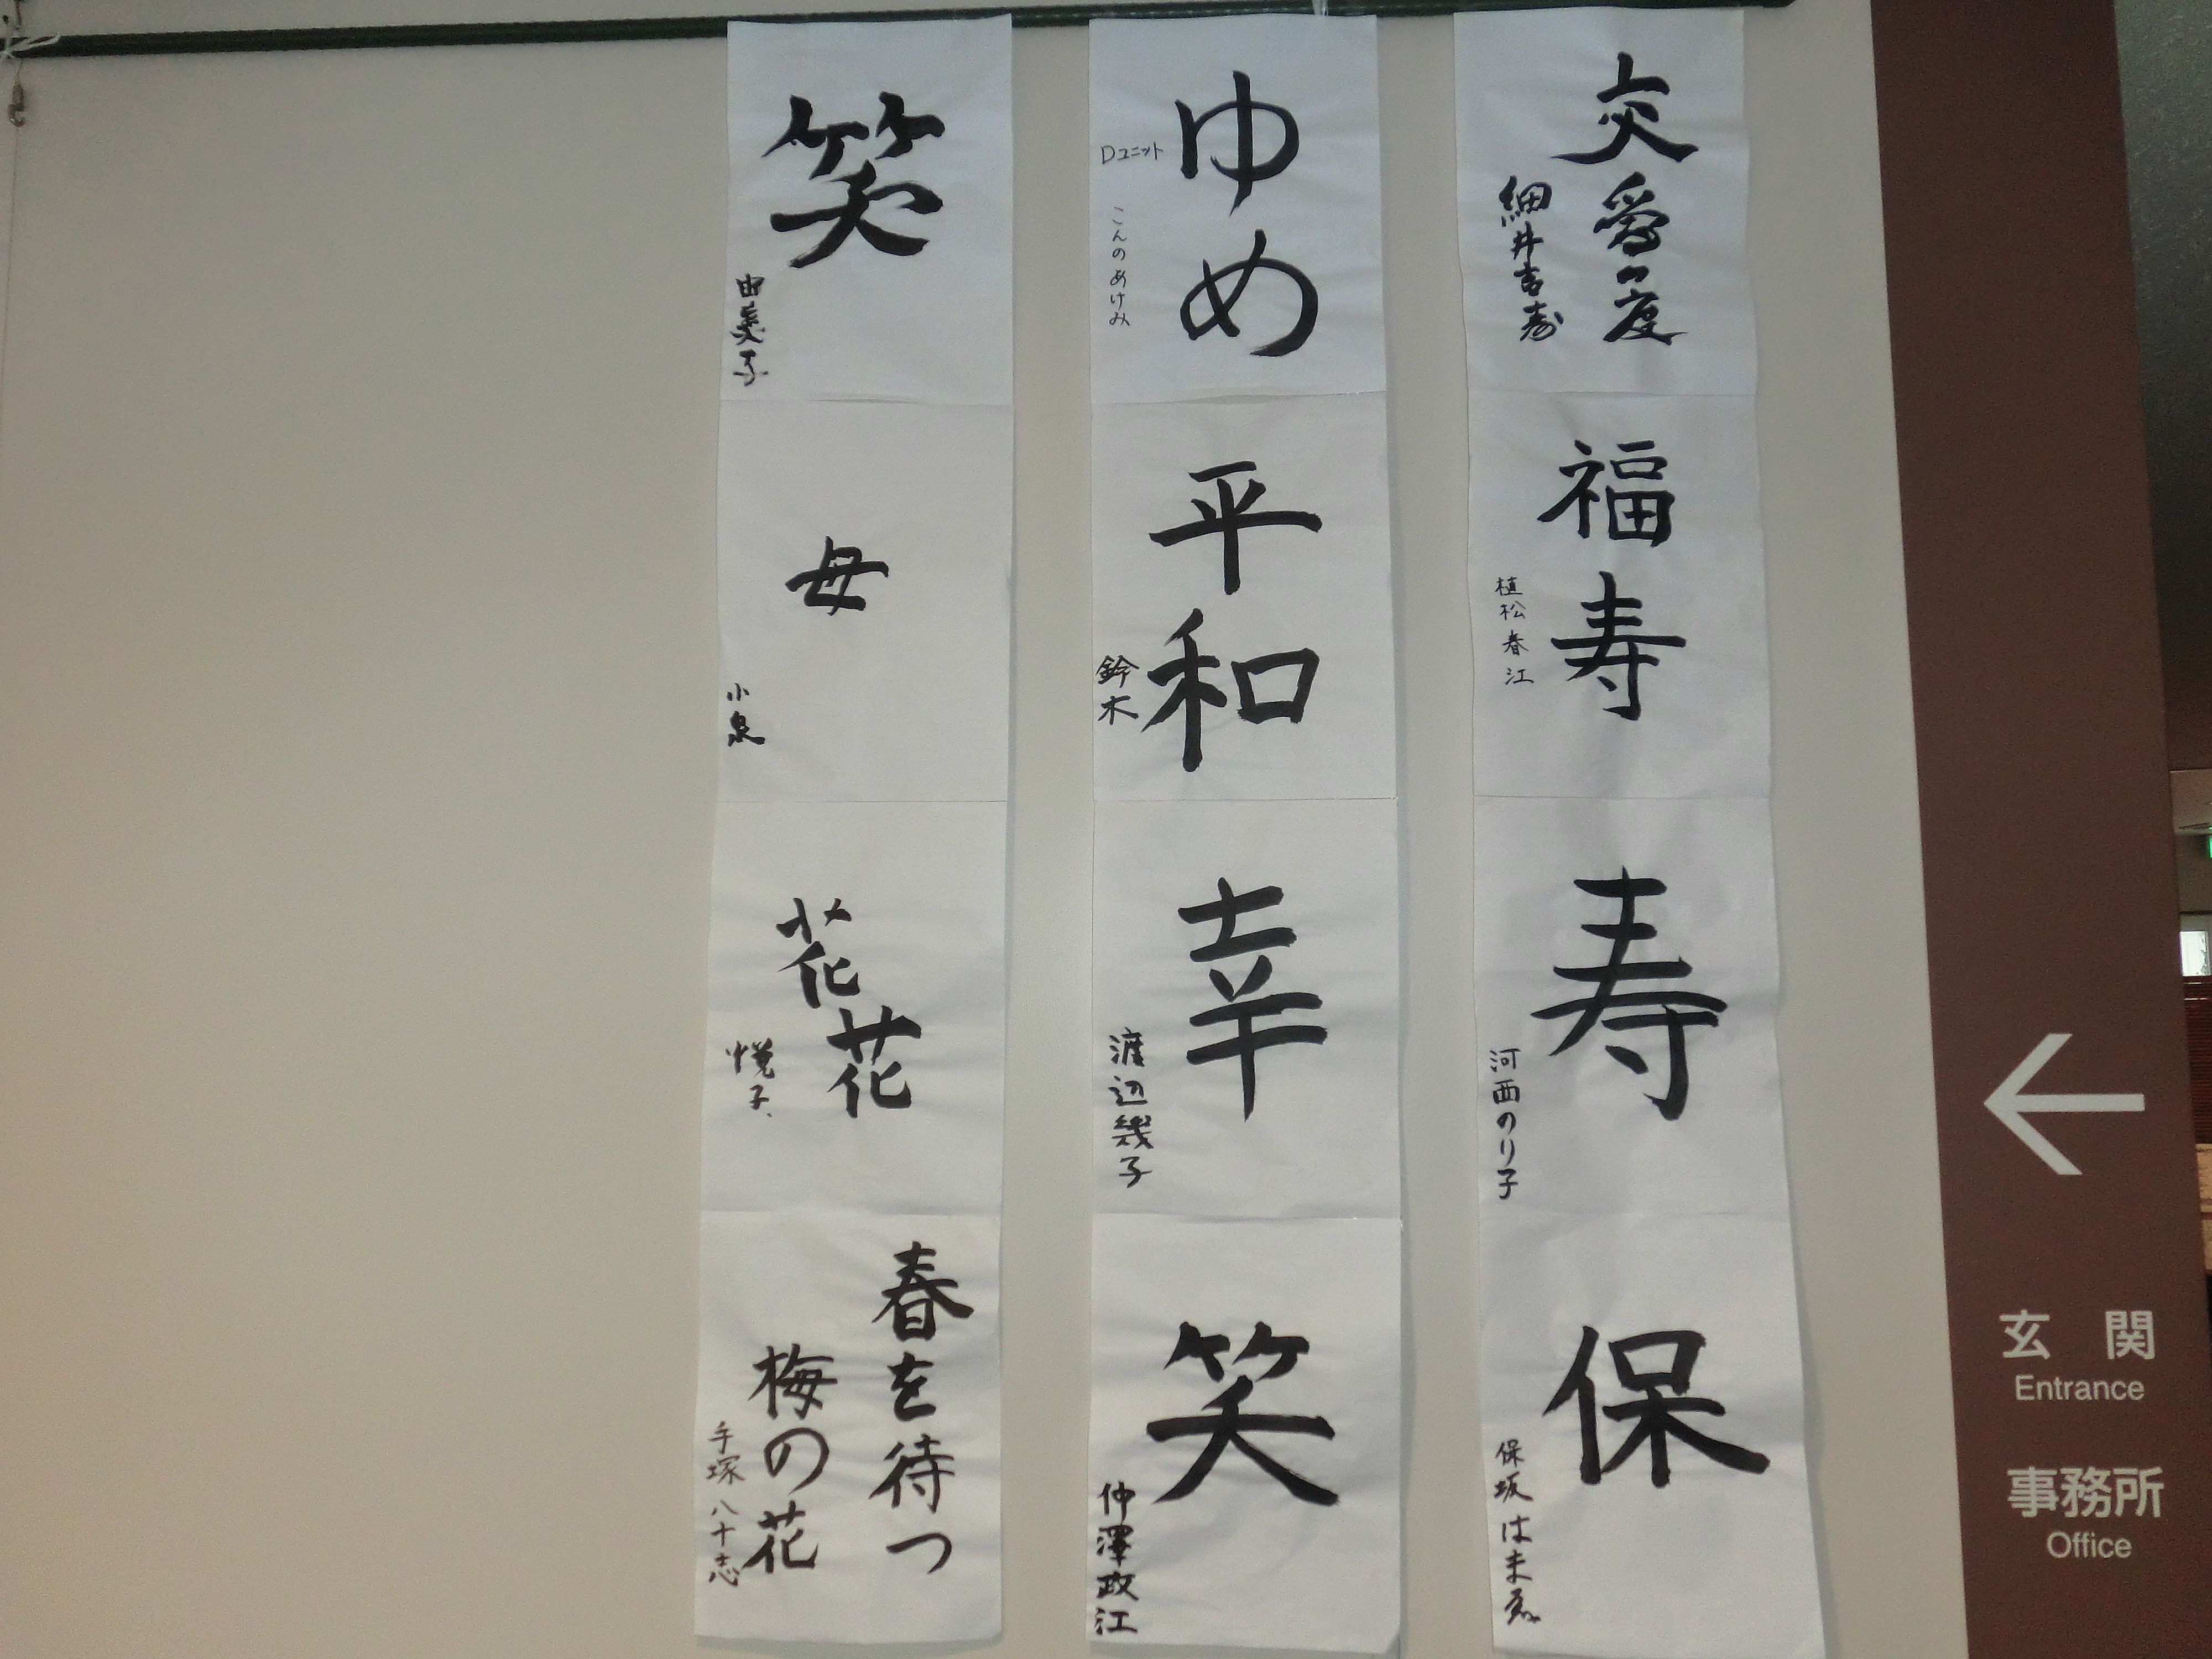 交愛度
細井吉寿
福寿
植松春江
寿
河西のり子
保
保坂はまゑ
ゆめ
Dユニット
こんのあけみ
平和
鈴木
幸
渡辺幾子
笑
仲澤政江
笑
由美子
母
小泉
花花
悦子
春を待つ
梅の花
手塚八十志
玄関
Entrance
事務所
Office